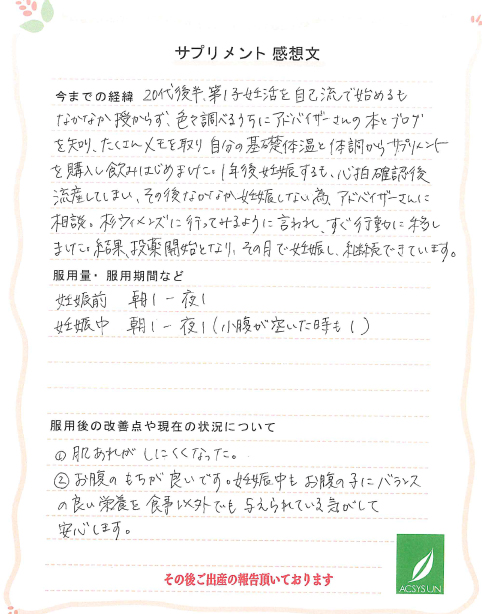 サプリメント 感想文
今までの経緯 20代後半、第1子妊活を自己流で始めるも
なかなか授からず、色々調べるうちにアドバイザーさんの本とブログ
を知り、たくさんメモを取り自分の基礎体温と体調からサプリメント
を購入し飲みはじめました。1年後妊娠するも、心拍確認後
流産してしまい、その後なかなか妊娠しない為、アドバイザーさんに
相談。杉ウィメンズに行ってみるように言われ、すぐ行動に移し
ました。結果、投薬開始となり、その月で妊娠し、継続できています。
服用量・服用期間など
妊娠前 朝1－夜1
妊娠中 朝1－夜1(小腹が空いた時も1)
服用後の改善点や現在の状況について
① 肌あれがしにくくなった。
② お腹のもちが良いです。妊娠中もお腹の子にバランス
の良い栄養を食事以外でも与えられている気がして
安心します。
ACSYSUN
その後ご出産の報告頂いております